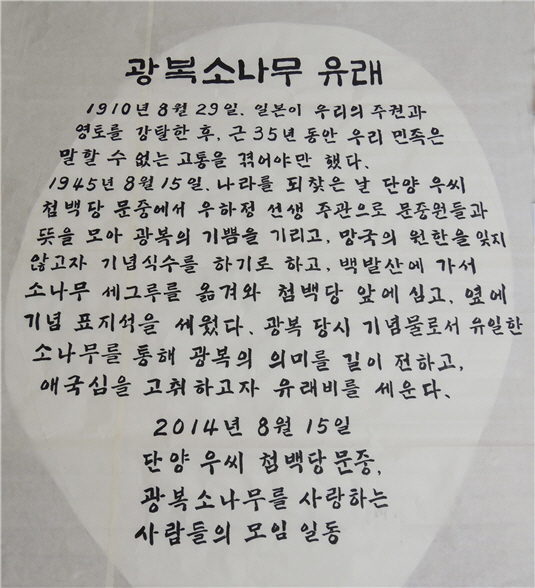 광복소나무 유래
1910년 8월 29일. 일본이 우리의 주권과
영토를 강탈한 후, 근 35년 동안 우리 민족은
말할 수 없는 고통을 겪어야만 했다.
1945년 8월 15일. 나라를 되찾은 날 단양 우씨
첨백당 문중에서 우하정 선생 주관으로 문중원들과
뜻을 모아 광복의 기쁨을 기리고, 망국의 원한을 잊지
않고자 기념식수를 하기로 하고, 백발산에 가서
소나무 세그루를 옮겨와 첨백당 앞에 심고, 옆에
기념 표지석을 세웠다. 광복 당시 기념물로서 유일한
소나무를 통해 광복의 의미를 길이 전하고,
애국심을 고취하고자 유래비를 세운다.
2014년 8월 15일
단양 우씨 첨백당 문중,
광복소나무를 사랑하는
사람들의 모임 일동